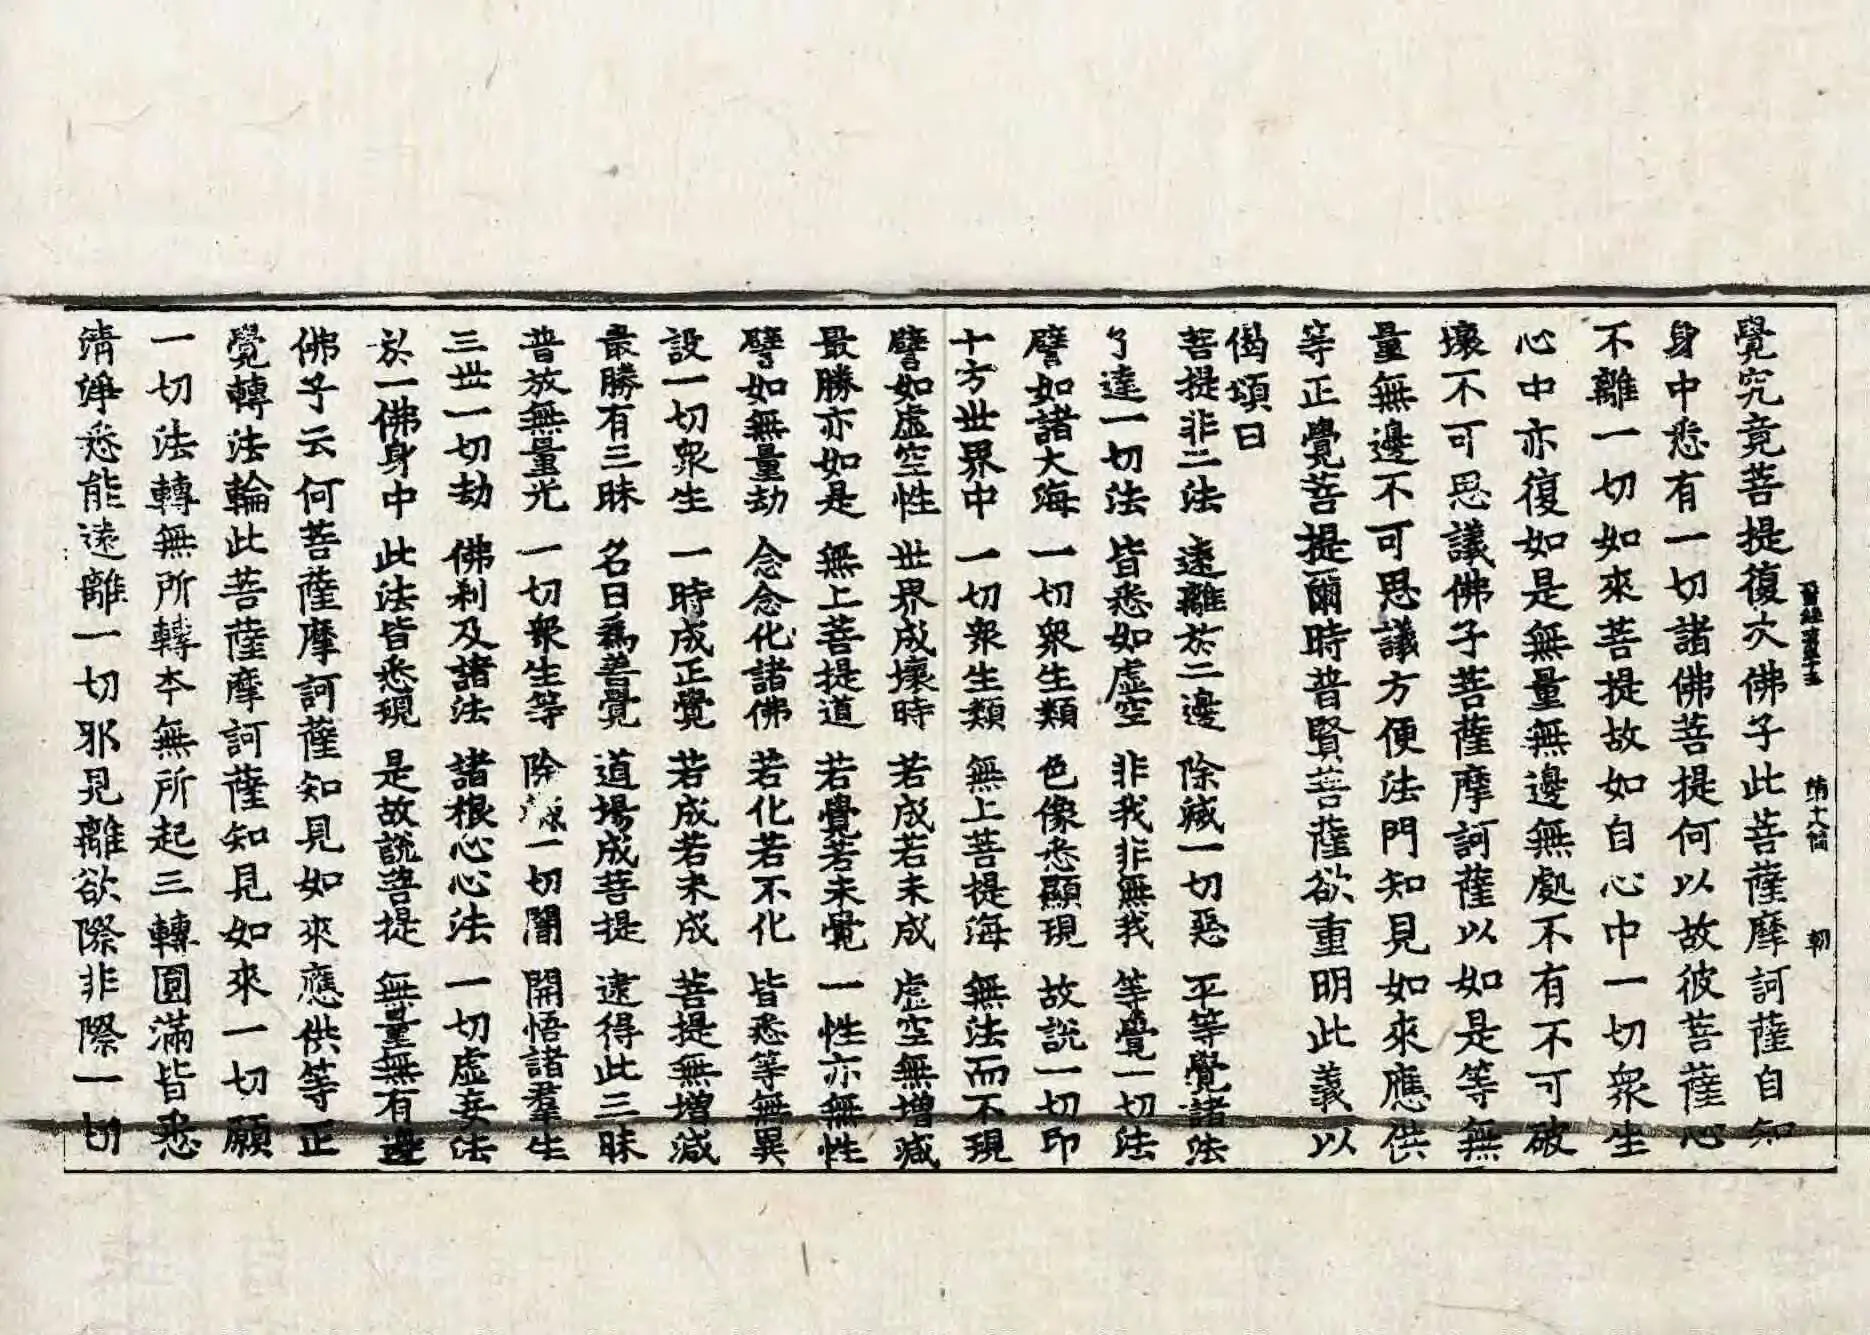 覺究竟菩提復次佛子此菩薩摩訶薩自知
身中悉有一切諸佛菩提何以故彼菩薩心
不離一切如來菩提故如自心中一切衆生
心中亦復如是無量無邊無處不有不可破
壞不可思議佛子菩薩摩訶薩以如是等無
量無邊不可思議方便法門知見如來應供
等正覺菩提爾時普賢菩薩欲重明此義以
偈頌曰
菩提非二法 遠離於二邊 除滅一切惡 平等覺諸法
了達一切法 皆悉如虛空 非我非無我 等覺一切法
譬如諸大海 一切衆生類 色像悉顯現 故說一切印
十方世界中 一切衆生類 無上菩提海 無法而不現
譬如虛空性 世界成壞時 若成若未成 虛空無增減
最勝亦如是 無上菩提道 若覺若未覺 一性亦無性
譬如無量劫 念念化諸佛 若化若不化 皆悉等無異
設一切衆生 一時成正覺 若成若未成 菩提無增減
最勝有三昧 名曰爲善覺 道場成菩提 逮得此三昧
普放無量光 一切衆生等 除一切闇 開悟諸羣生
三世一切劫 佛刹及諸法 諸根心心法 一切虛妄法
於一佛身中 此法皆悉現 是故說菩提 無量無有邊
佛子云何菩薩摩訶薩知見如來應供等正
覺轉法輪此菩薩摩訶薩知見如來一切願
一切法轉無所轉本無所起三轉圓滿皆悉
淸淨悉能遠離一切邪見離欲際非際一切